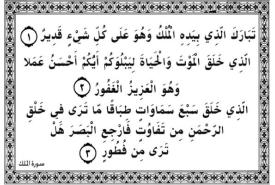 تَبَارَكَ الَّذِي بِيَدِهِ الْمُلْكُ وَهُوَ عَلَى كُلِّ شَيْءٍ قَدِيرٌ ١
الَّذِي خَلَقَ الْمَوْتَ وَالْحَيَاةَ لِيَبْلُوَكُمْ أَيُّكُمْ أَحْسَنُ عَمَلًا
وَهُوَ الْعَزِيزُ الْغَفُورُ ٢
الَّذِي خَلَقَ سَبْعَ سَمَاوَاتٍ طِبَاقًا مَّا تَرَى فِي خَلْقِ
الرَّحْمَنِ مِن تَفَاوُتٍ فَارْجِعِ الْبَصَرَ هَلْ
تَرَى مِن فُطُورٍ ٣
سورة الملك